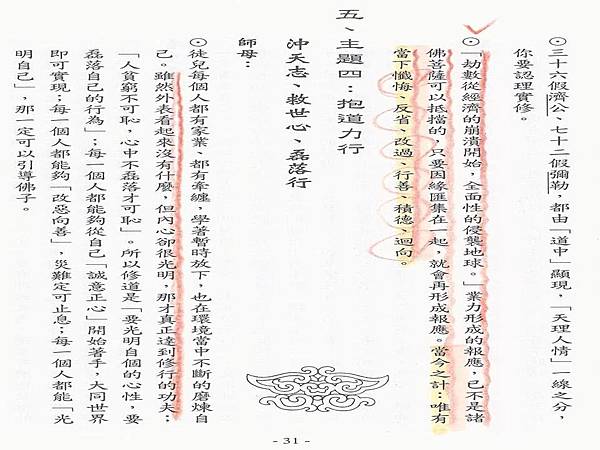 ⊙三十六假濟公、七十二假彌勒，都由「道中」顯現，「天理人情」一線之分，
你要認理實修。
⊙「劫數從經濟的崩潰開始，全面性的侵襲地球。」業力形成的報應，已不是諸
佛菩薩可以抵擋的，只要因緣匯集在一起，就會再形成報應。當今之計：唯有
當下懺悔、反省、改過、行善、積德、迴向。
五、主題四：抱道力行
沖天志、救世心、磊落行
師母：
⊙徒兒每個人都有家業、都有牽纏，學著暫時放下，也在環境當中不斷的磨煉自
己。雖然外表看起來沒有什麼，但內心卻很光明，那才真正達到修行的功夫：
「人貧窮不可恥，心中不磊落才可恥」。所以修道是「要光明自個的心性，要
磊落自己的行為」；每一個人都能夠從自己「誠意正心」開始著手，大同世界
即可實現；每一個人都能夠「改惡向善」，災難定可止息；每一個人都能「光
明自己」，那一定可以引導佛子。
- 31 -